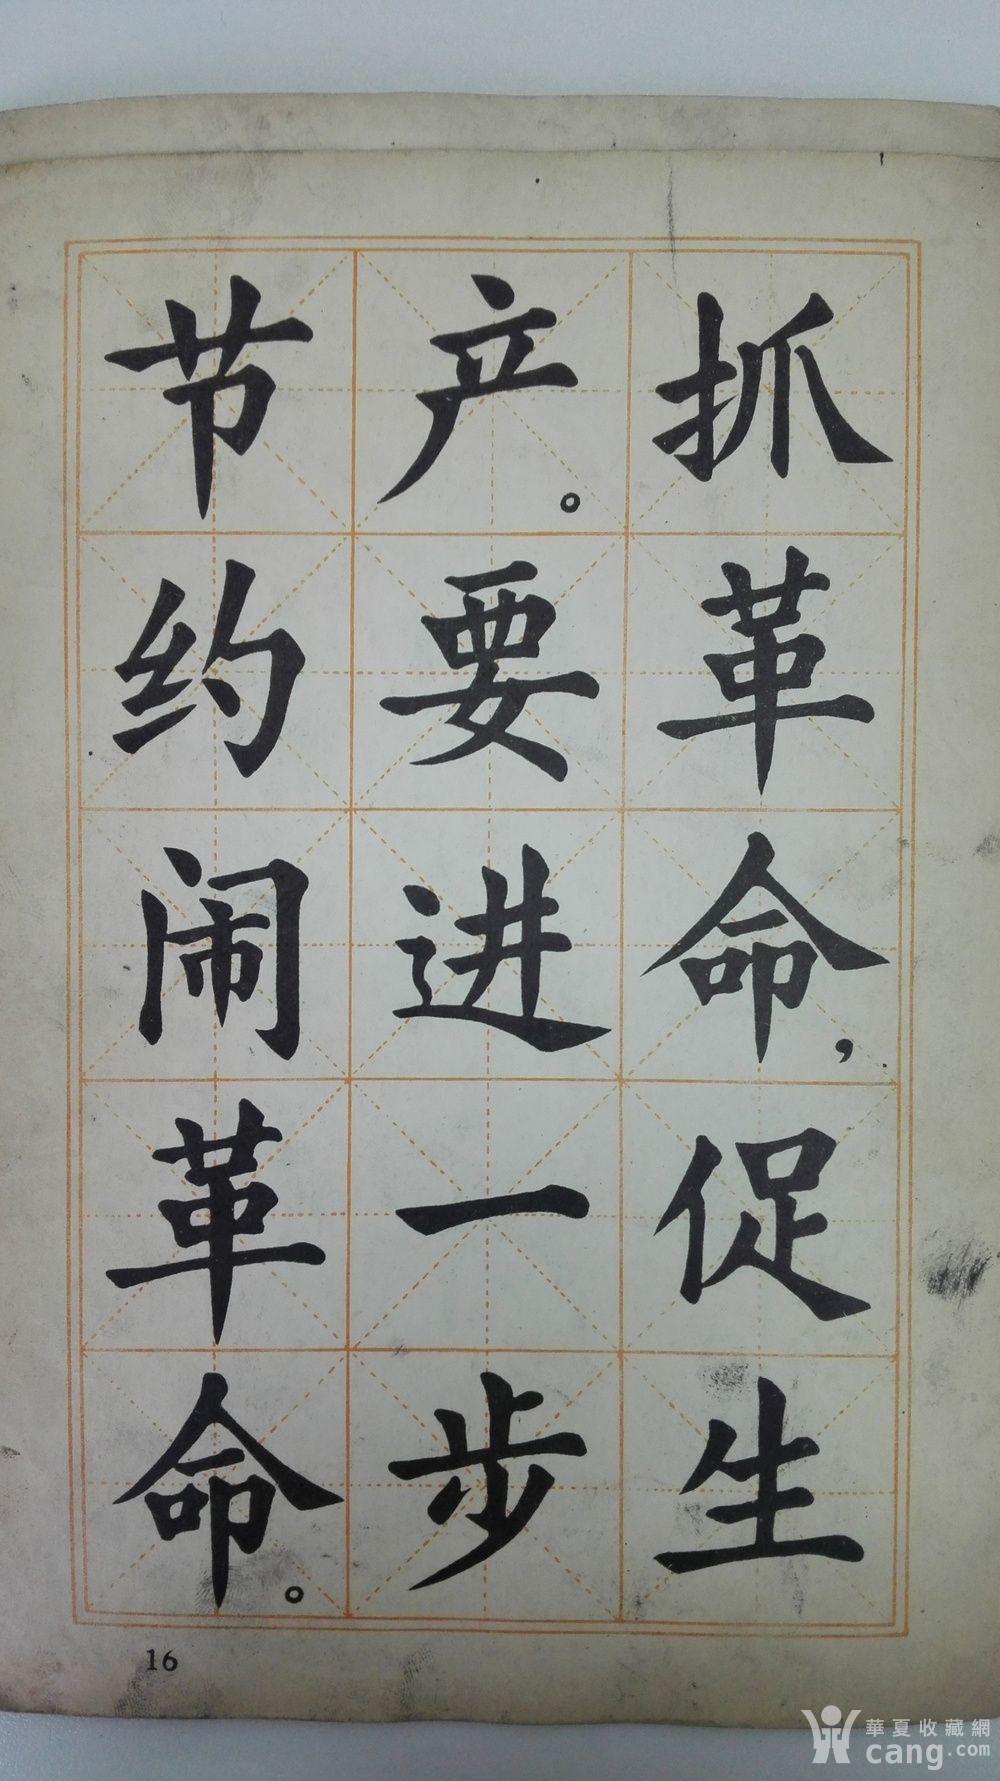 抓革命，促生
产。要进一步
节约闹革命。
16
華夏收藏網
cang.com